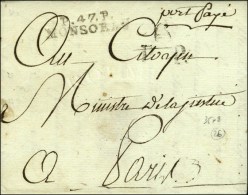 port Payé
P.47.P.
MONSOREAU
Au Citoyen
Ministre de la justice
A Paris